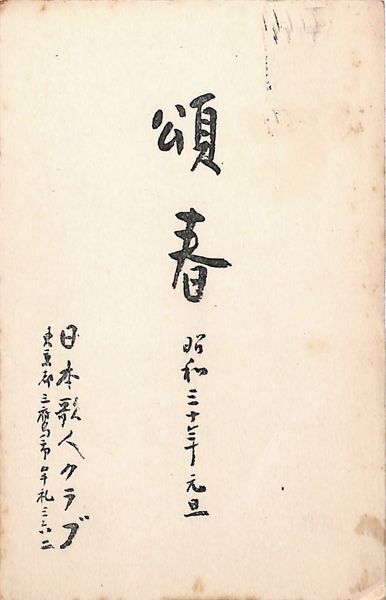 頌春
昭和三十年 元旦
日本歌人クラブ
東京都三鷹市牟礼三六二